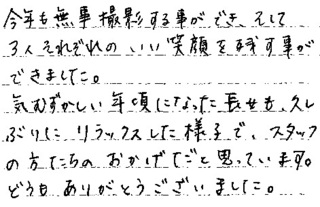 今年も無事撮影する事ができ、そして
3人それぞれの いい 笑顔を残す事が
できました。
気むずかしい 年頃になった長女も、久し
ぶりに リラックスした様子で、スタッフ
の方たちの おかげだと思っています。
どうも ありがとうございました。